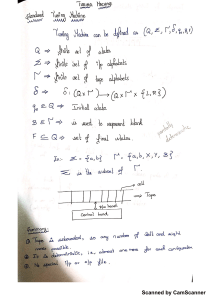 Turing Machine
Standard Turing Machine
Turing Machine can be defined as (Q, Σ, Γ, δ, q₀, B, F)
Q ⇒ finite set of states
Σ ⇒ finite set of i/p alphabets
Γ ⇒ finite set of tape alphabets
δ ⇒ δ: (Q × Γ) → (Q × Γ × {L, R})
q₀ ∈ Q ⇒ Initial state
B ∈ Γ ⇒ is used to represent blank
F ⊆ Q ⇒ set of final states.
partially
Σ = {a, b} Γ = {a, b, X, Y, B}
Σ is the subset of Γ.
cell
Tape
R/w head
Control Unit
Tape is unbounded, so any number of left and right
moves possible.
It is deterministic, i.e. atmost one move for each configuration
No special i/p or o/p file.
Scanned by CamScanner